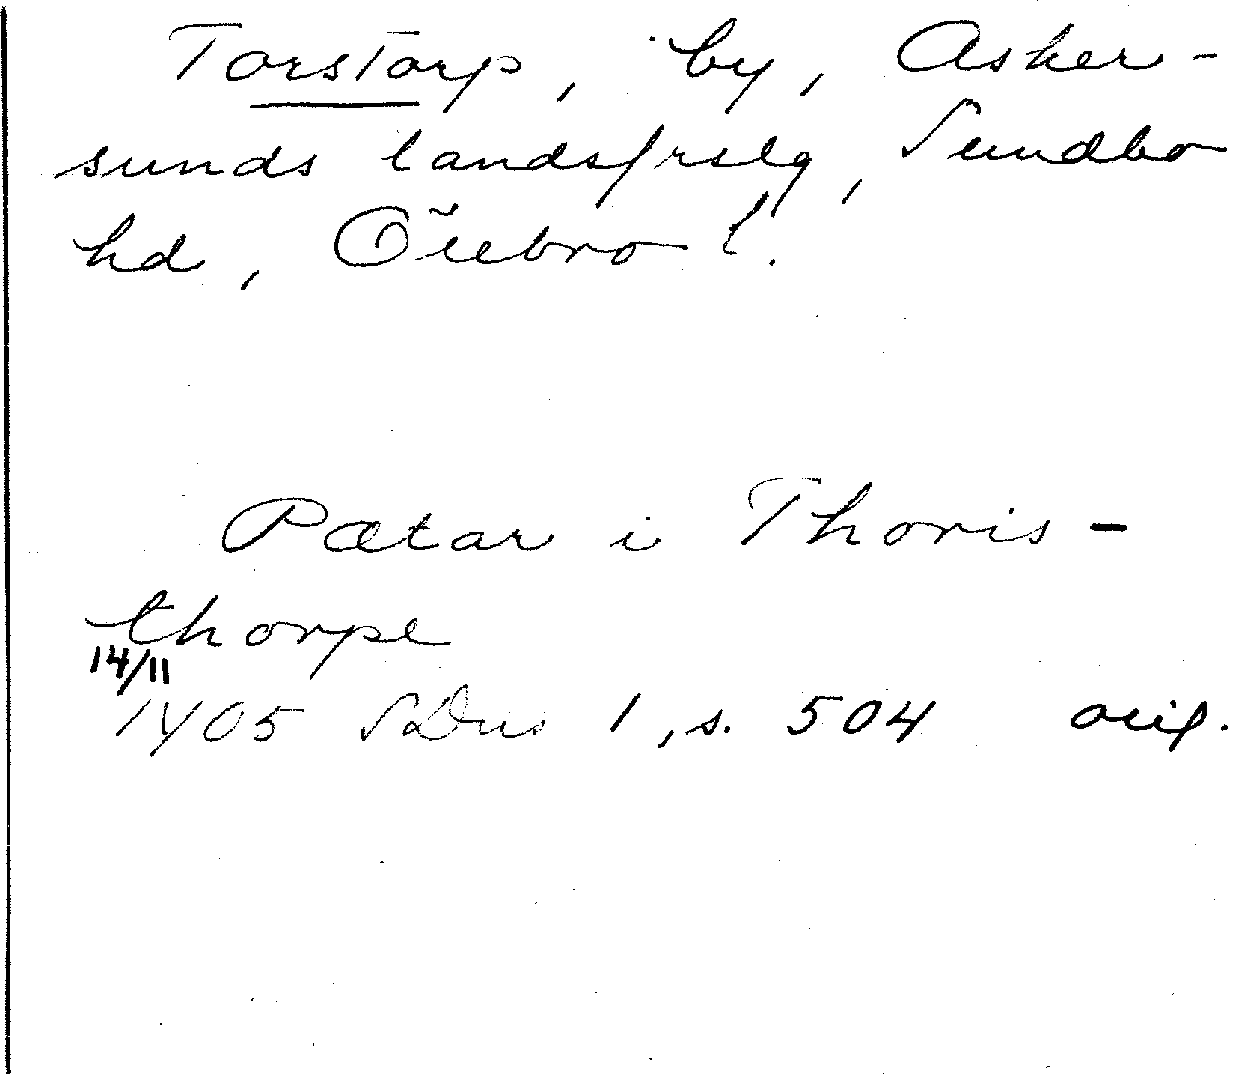 Torstorp, by, Asker-
sunds landsfrslg, Sundbo
hd, Örebro l.
Pætar i Thoris-
thorpe
14/11
1405 SDns 1, s. 504 orig.